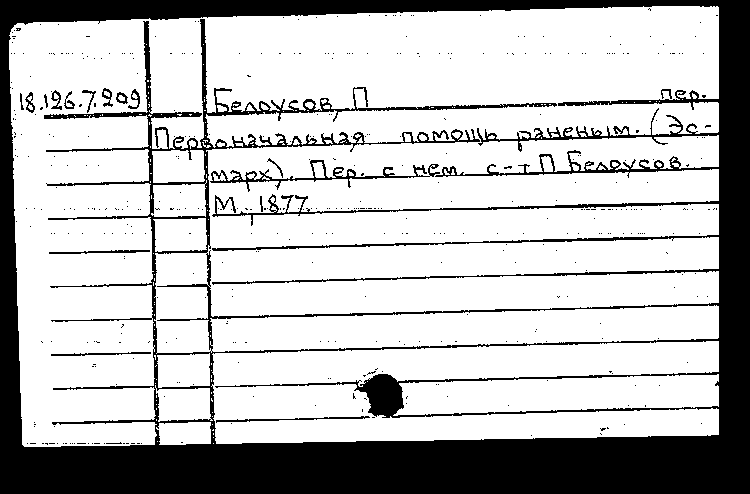 18.126.7.209 Белоусов, П пер.
Первоначальная помощь раненым. (Эс-
марх). Пер. с нем. с-т П Белоусов.
М., 1877.